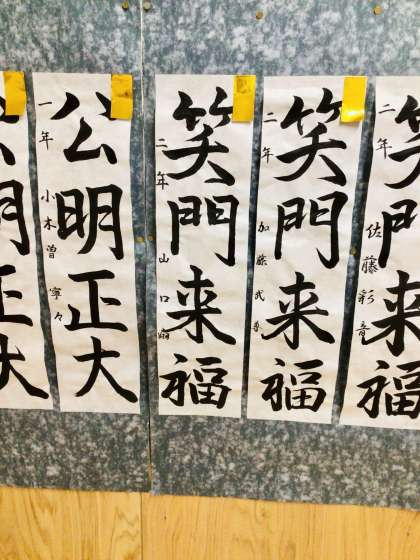 笑門来福
二年 佐藤彩音
笑門来福
二年 加藤
笑門来福
二年 山口
公明正大
一年 小木曽 寧々
公明正大